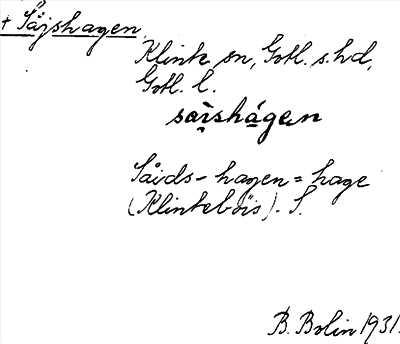 + Såjshagen
Klinte sn, Gotl. s. hd,
Gotl. l.
saı̀shágen
Såids-hagen = hage
(Klinteböis). S.
B. Bolin 1931.